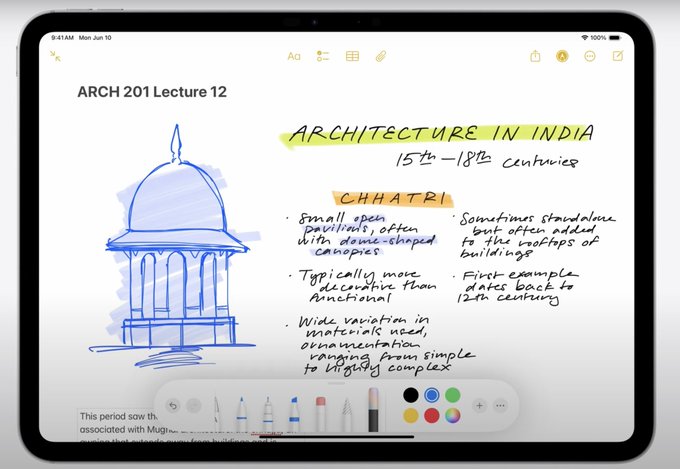 9:41 AM Mon Jun 10
100%
Aa
ARCH 201 Lecture 12
ARCHITECTURE IN INDIA
15th-18th centuries
CHHATRI
· Small open
pavilions, often
with dome-shaped
canopies
· Typically more
decorative than
functional
· Wide variation in
materials used,
ornamentation
ranging from simple
to highly complex
· Sometimes standalone
but often added
to the rooftops of
buildings
· First example
dates back to
12th century
This period saw th
associated with Mugh
awning that extends away from buildings and is